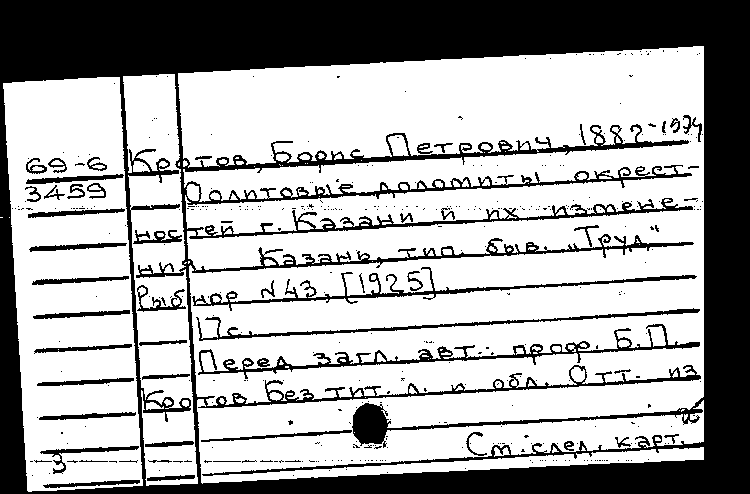 69-6 Кротов, Борис Петрович, 1882-1974
3459 Оолитовые доломиты окрест-
ностей г. Казани и их измене-
ния. Казань, тип. быв. „Труд"
Рыбнор №43, [1925].
17с.
Перед загл. авт.: проф. Б.П.
Кротов. Без тит. л. и обл. Отт. из
См. след. карт.
3